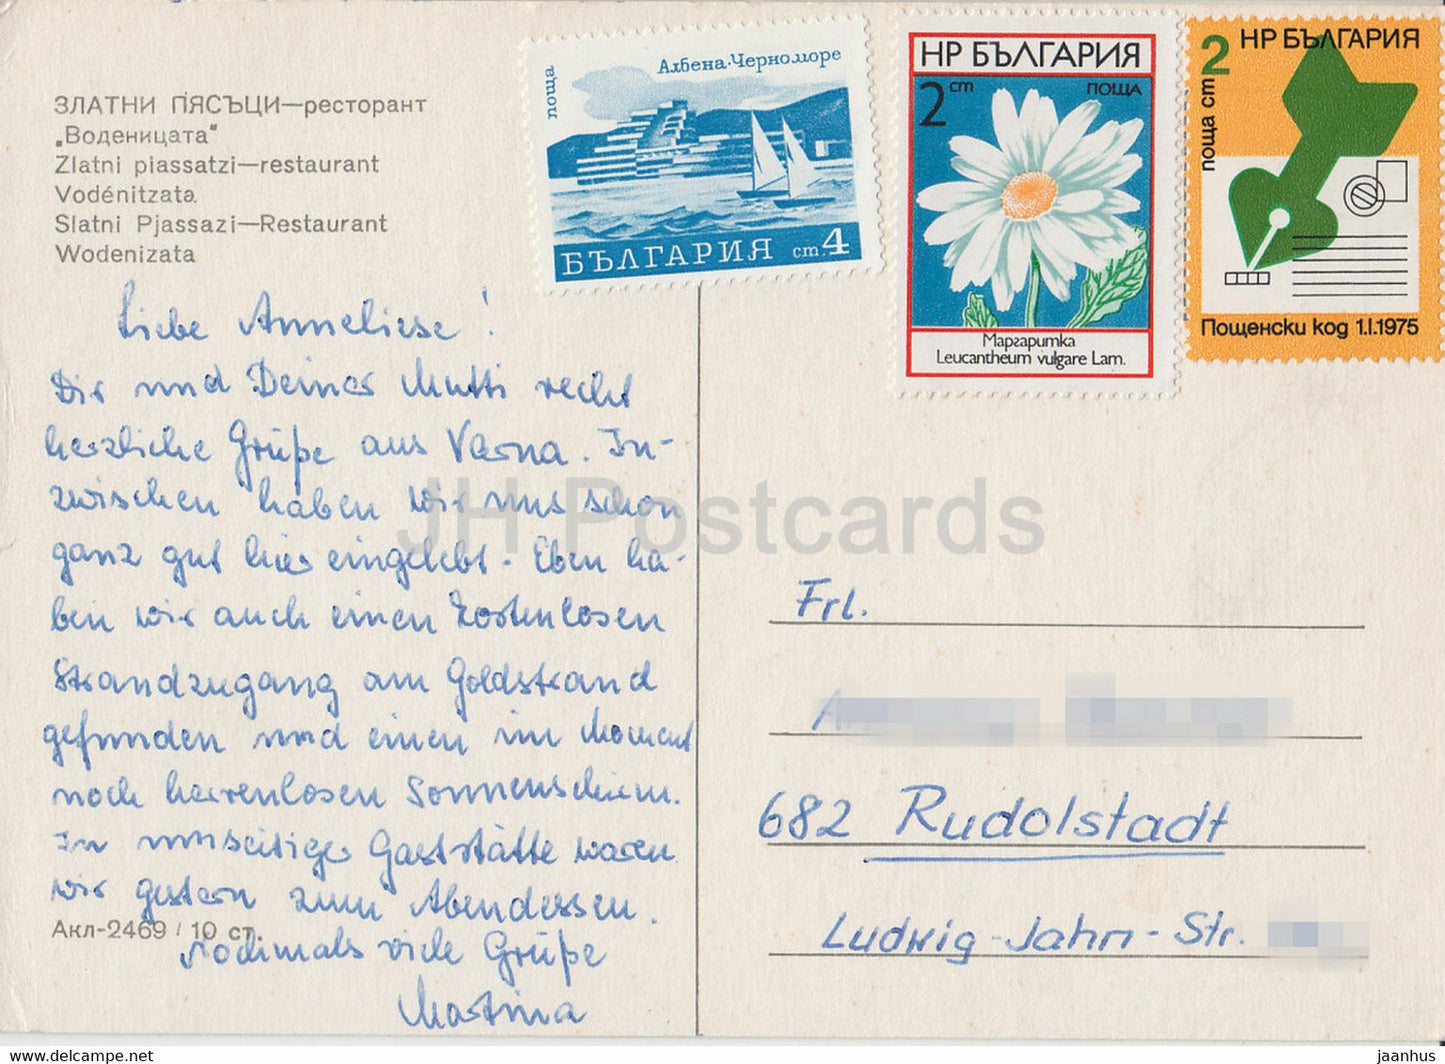 ЗЛАТНИ ПЯСЪЦИ—ресторант
„Воденицата"
Zlatni piassatzi—restaurant
Vodénitzata
Slatni Pjassazi—Restaurant
Wodenizata
поща
Албена·Черноморе
БЪЛГАРИЯ ст.4
НР БЪЛГАРИЯ
2 ст ПОЩА
Маргаритка
Leucantheum vulgare Lam.
2 НР БЪЛГАРИЯ
поща ст
Пощенски код 1.I.1975
Liebe Anneliese!
Dir und Deiner Mutti recht
herzliche Grüße aus Varna. In-
zwischen haben wir uns schon
ganz gut hier eingelebt. Eben ha-
ben wir auch einen kostenlosen
Strandzugang am Goldstrand
gefunden und einen im Moment
noch herrenlosen Sonnenschirm.
In umseitiger Gaststätte waren
wir gestern zum Abendessen.
Nochmals viele Grüße
Martina
Акл-2469 / 10 ст.
JH Postcards
Frl.
682 Rudolstadt
Ludwig-Jahn-Str.
jaanhus
https://jhpostcards.com